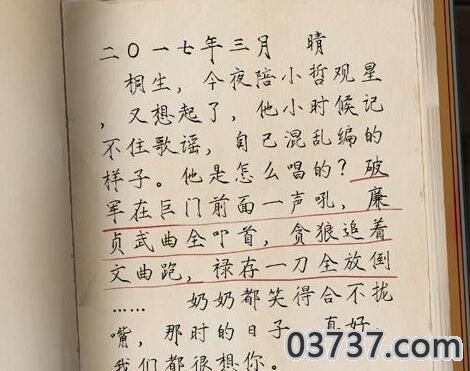 二〇一七年三月 晴
桐生，今夜陪小哲观星
，又想起了，他小时候记
不住歌谣，自己混乱编的
样子。他是怎么唱的？破
军在巨门前面一声吼，廉
贞武曲全叩首，贪狼追着
文曲跑，禄存一刀全放倒
…… 奶奶都笑得合不拢
嘴，那时的日子 真好
我们都很想你。
03737.com